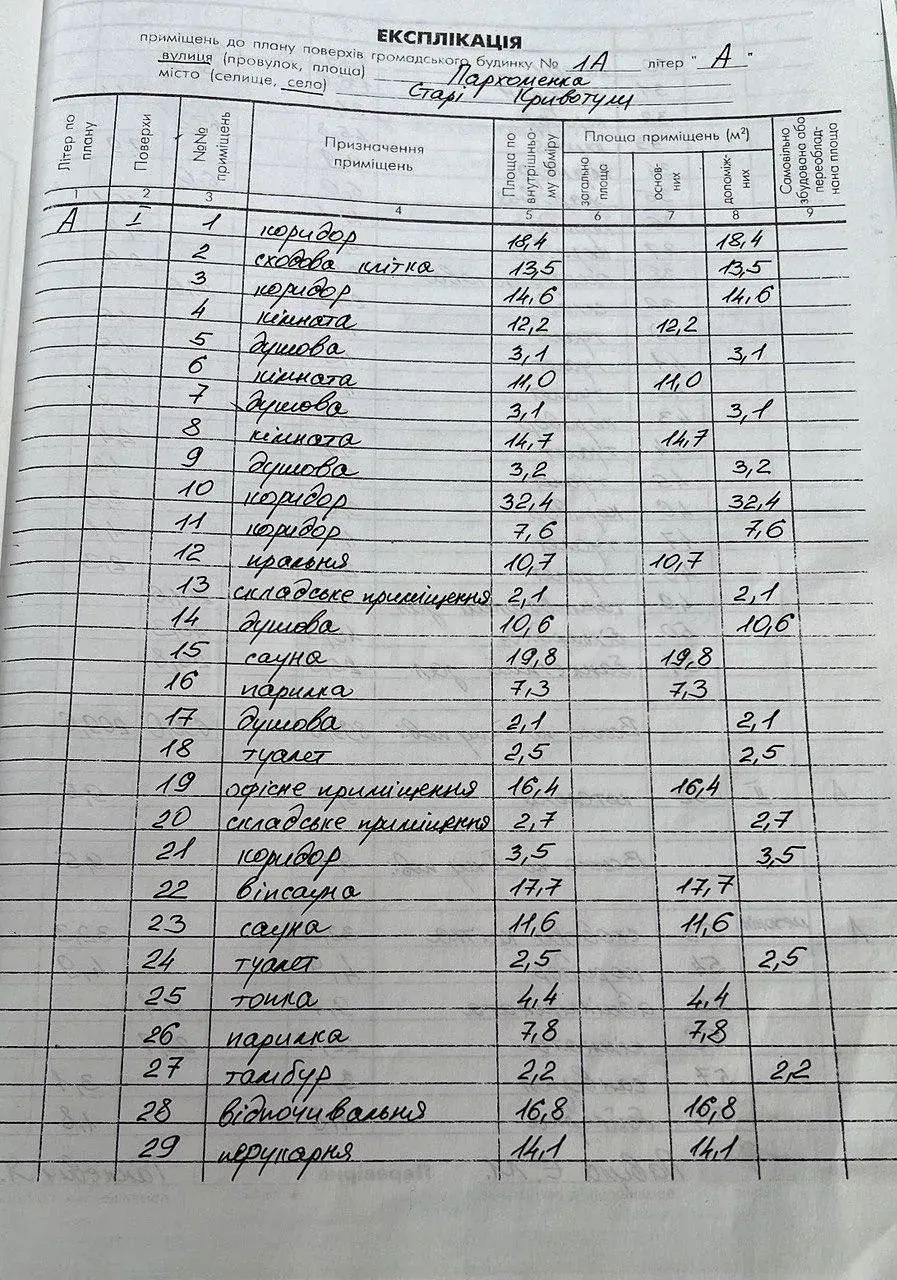 ЕКСПЛІКАЦІЯ
приміщень до плану поверхів громадського будинку № 1А літер " А "
вулиця (провулок, площа) Пархоменка
місто (селище, село) Старі Кривотули
Літер по плану | Поверхи | №№ приміщень | Призначення приміщень | Площа по внутрішньому обміру | Площа приміщень (м²) | Самовільно збудована або переобладнана площа
загальна площа | основних | допоміжних
1 2 3 4 5 6 7 8 9
А I 1 коридор 18,4 18,4
2 сходова клітка 13,5 13,5
3 коридор 14,6 14,6
4 кімната 12,2 12,2
5 душова 3,1 3,1
6 кімната 11,0 11,0
7 душова 3,1 3,1
8 кімната 14,7 14,7
9 душова 3,2 3,2
10 коридор 32,4 32,4
11 коридор 7,6 7,6
12 пральня 10,7 10,7
13 складське приміщення 2,1 2,1
14 душова 10,6 10,6
15 сауна 19,8 19,8
16 парилка 7,3 7,3
17 душова 2,1 2,1
18 туалет 2,5 2,5
19 офісне приміщення 16,4 16,4
20 складське приміщення 2,7 2,7
21 коридор 3,5 3,5
22 віпсауна 17,7 17,7
23 сауна 11,6 11,6
24 туалет 2,5 2,5
25 топка 4,4 4,4
26 парилка 7,8 7,8
27 тамбур 2,2 2,2
28 відпочивальня 16,8 16,8
29 перукарня 14,1 14,1